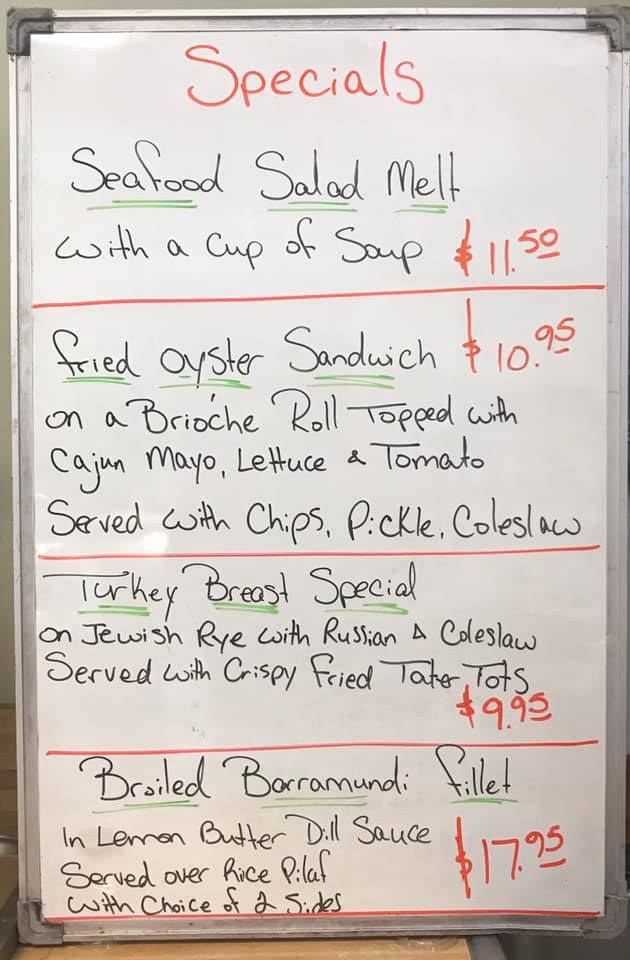 Specials
Seafood Salad Melt
with a Cup of Soup $11.50
Fried Oyster Sandwich $10.95
on a Brioche Roll Topped with
Cajun Mayo, Lettuce & Tomato
Served with Chips, Pickle, Coleslaw
Turkey Breast Special
on Jewish Rye with Russian & Coleslaw
Served with Crispy Fried Tater Tots
$9.95
Broiled Barramundi Fillet
In Lemon Butter Dill Sauce
$17.95
Served over Rice Pilaf
With Choice of 2 Sides